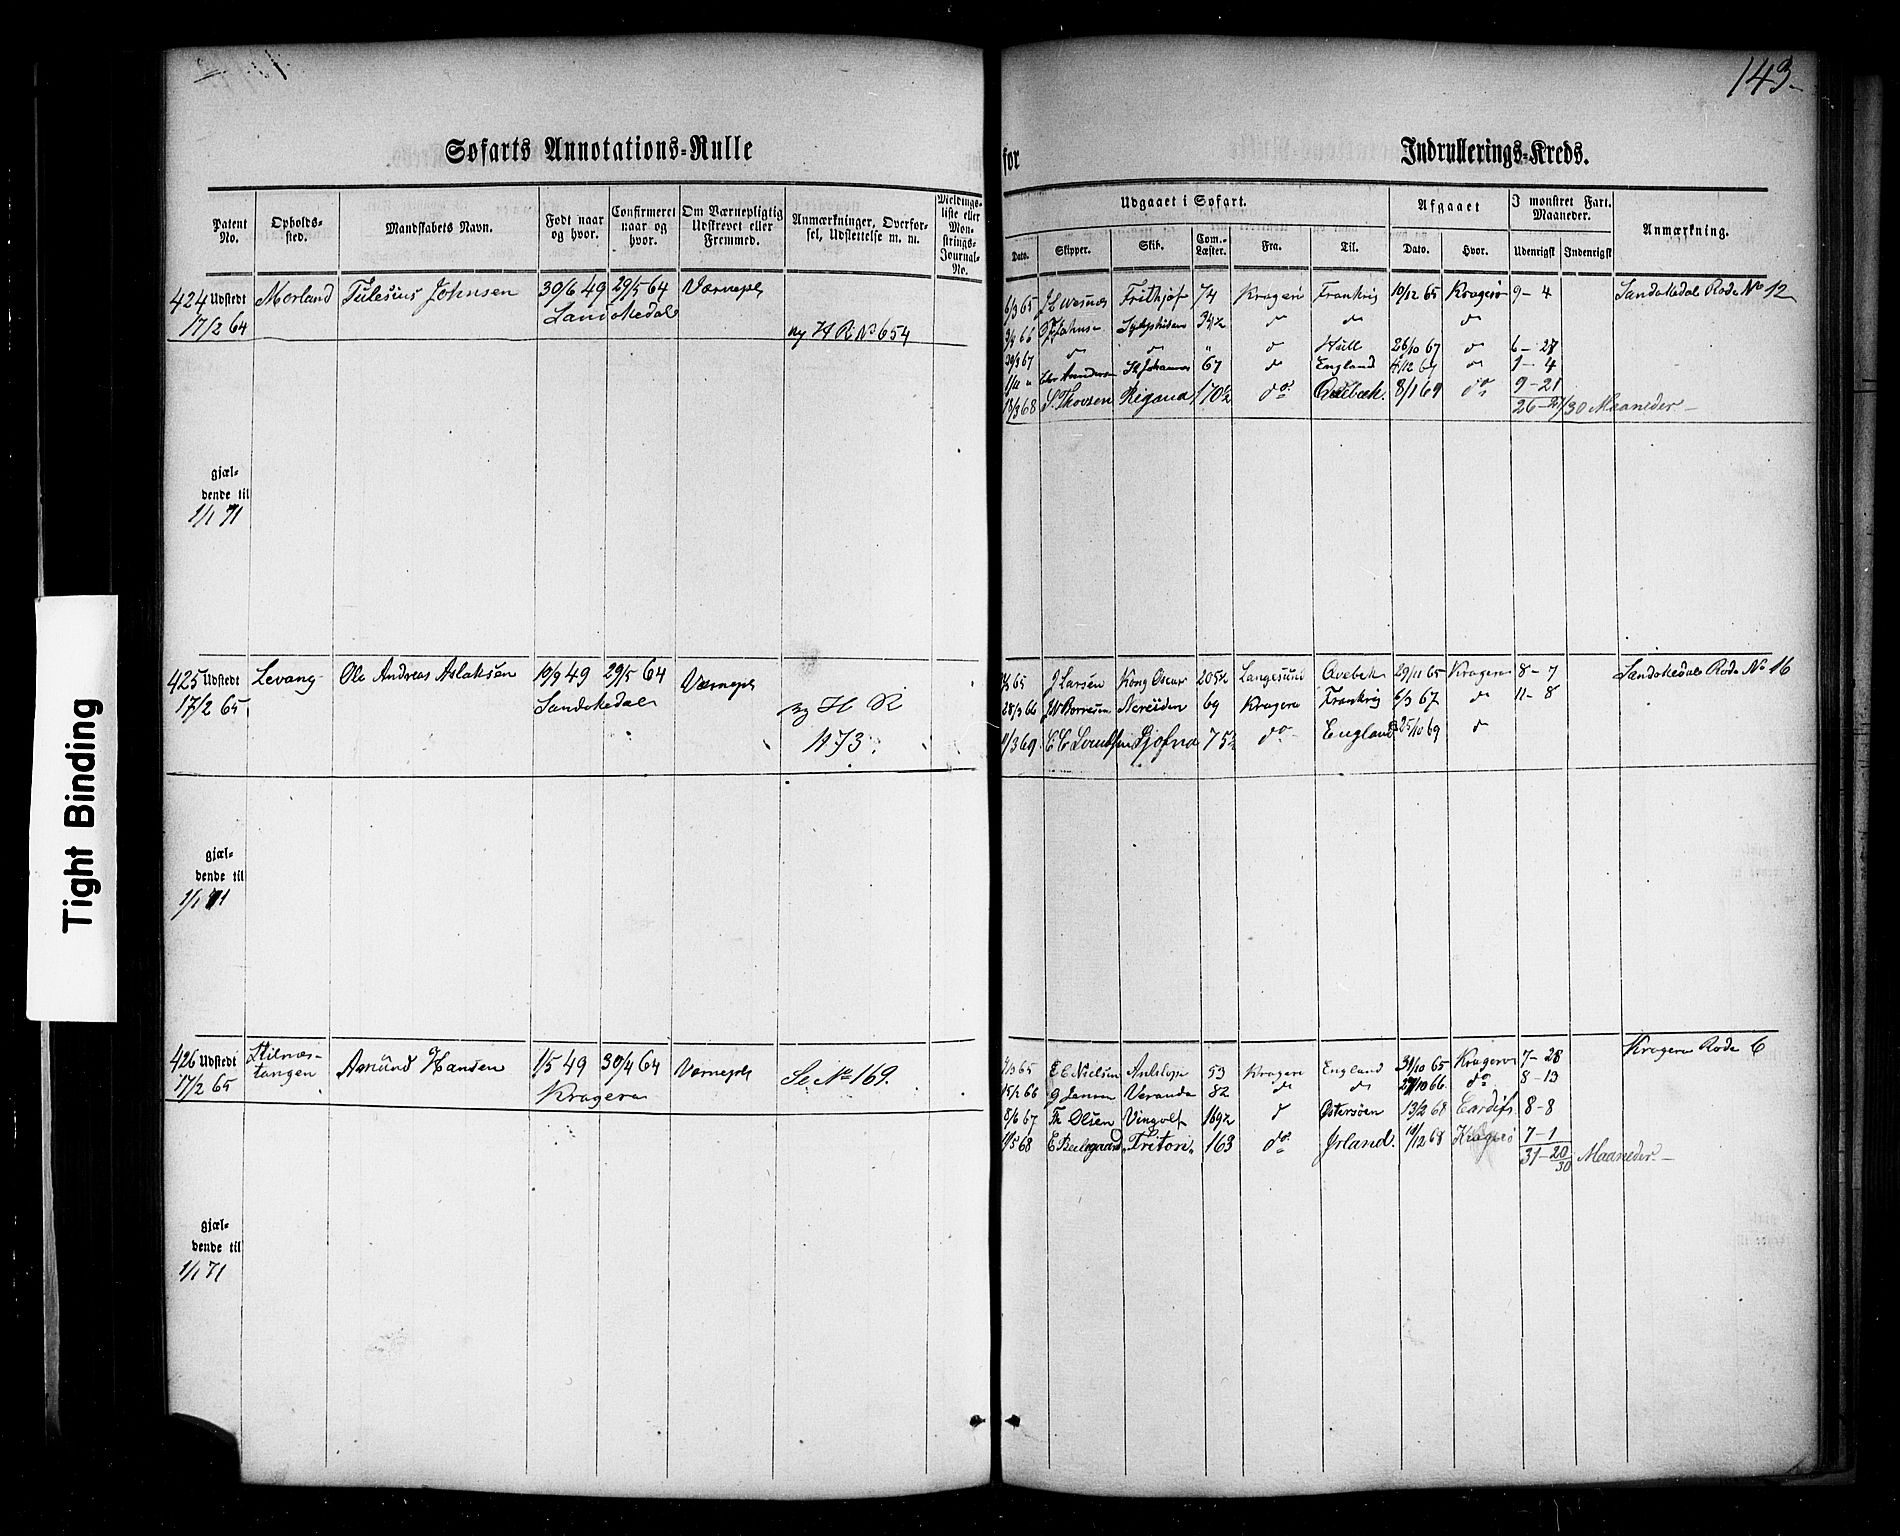 143.
Søfarts Annotations-Rulle
for
Indrullerings-Kreds.
Patent No.
Opholds-sted.
Mandskabets Navn.
Født naar og hvor.
Confirmeret naar og hvor.
Om Værnepligtig Udskrevet eller Fremmed.
Anmærkninger, Overfør-sel, Udslettelse m. m.
Meldings-liste eller Møn-strings-Journal-No.
Udgaaet i Søfart.
Afgaaet
I mønstret Fart. Maaneder.
Anmærkning.
Dato.
Skipper.
Skib.
Com.-Læster.
Fra.
Til.
Dato.
Hvor.
Udenrigsk
Indenrigsk
424 Udstedt Morland Tulesius Johnsen 30/6 49 29/5 64 Værnepl
17/2 64 Sandøkedal
ny H R No 654
6/3 65 Frithjof 74 Kragerø Frankrig 10/12 65 Kragerø 9-4 Sandøkedal Rode No 12
3/4 66 34½ do do do
29/3 67 do do " do Hull 26/10 67 do 6-27
1/11 " Chr Andersen St Johannes 67 do England 4/12 67 do 1-4
13/3 68 S. Thorsen Rigand 170½ do 8/1 69 do 9-21
26-27/30 Maaneder
gjæl-
dende til
1/1 71
425 Udstedt Levang Ole Andreas Aslaksen 10/9 49 29/5 64 Værnepl
17/2 65 Sandøkedal
ny H R
1873.
65 J Larsen Kong Oscar 205½ Langesund 29/11 65 Kragerø 8-7 Sandøkedal Rode No 16
28/3 66 Nereiden 69 Kragerø Frankrig 6/3 67 do 11-8
/3 69 Sjofna 75½ do England 25/10 69 do
gjæl-
dende til
1/1 71
426 Udstedt Stilnæs- Asmund Hansen 1/5 49 30/4 64 Værnepl Se No 169.
17/2 65 tangen Kragerø
/3 65 E C Nielsen Antelope 53 Kragerø England 31/10 65 Kragerø 7-28 Kragerø Rode 6
15/2 66 G Jensen Veranda 82 do do 27/10 66 do 8-13
8/6 67 Th Olsen Vingolf 169½ do Østersøen 13/2 68 Cardiff 8-8
/5 68 Triton 163 do Irland. 10/12 68 Kragerø 7-1
31-20/30 Maaneder
gjæl-
dende til
1/1 71
Tight Binding